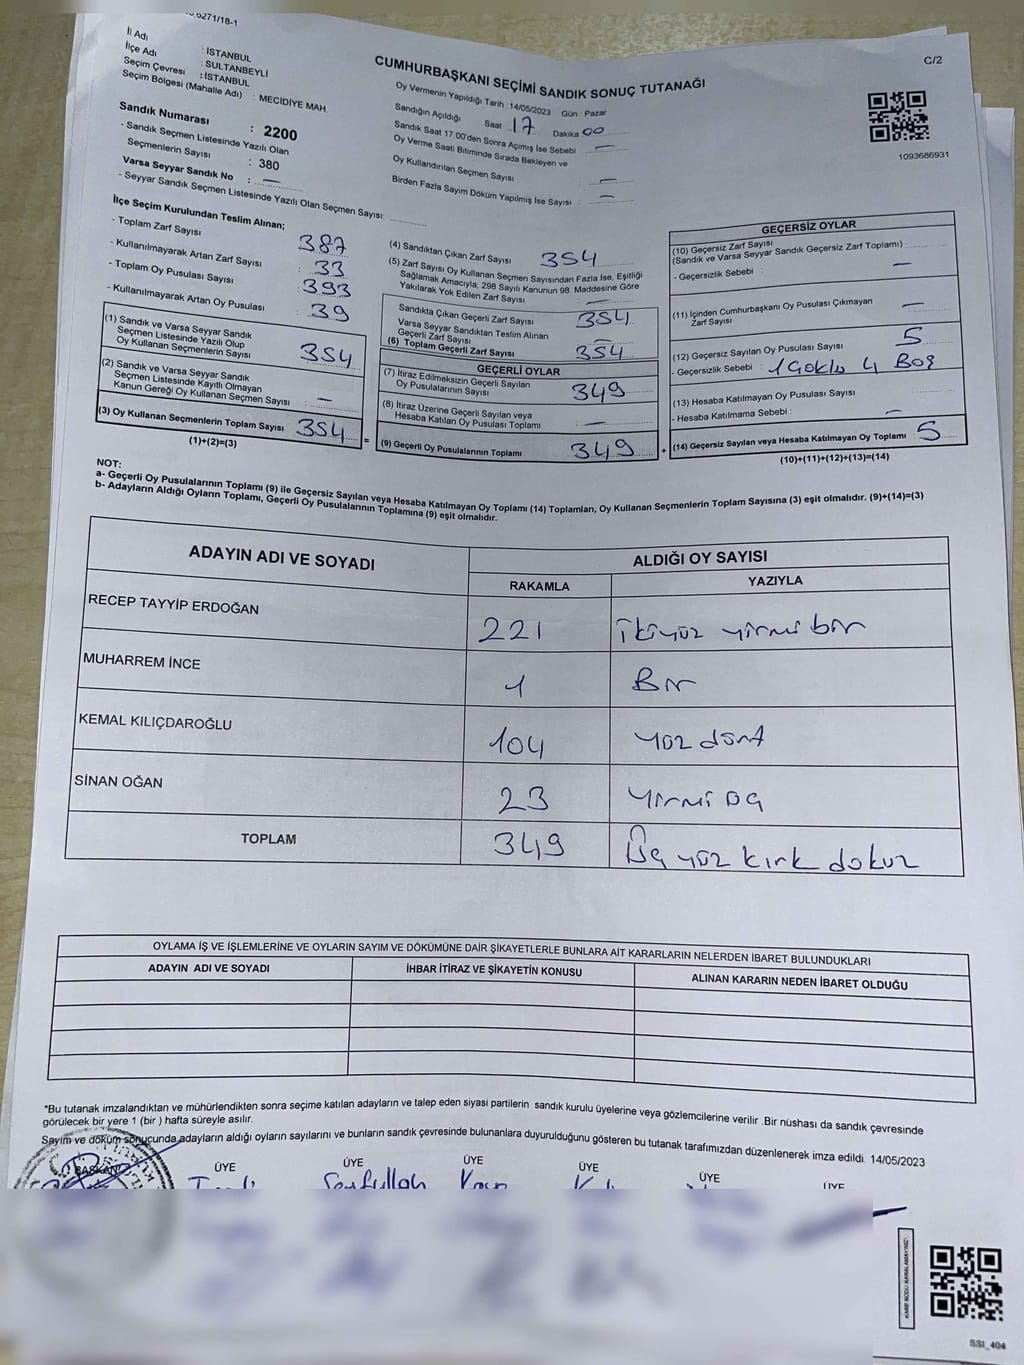 6271/18-1
C/2
İl Adı : İSTANBUL
İlçe Adı : SULTANBEYLİ
Seçim Çevresi : İSTANBUL
Seçim Bölgesi (Mahalle Adı) : MECİDİYE MAH
Sandık Numarası : 2200
- Sandık Seçmen Listesinde Yazılı Olan
Seçmenlerin Sayısı : 380
Varsa Seyyar Sandık No : —
- Seyyar Sandık Seçmen Listesinde Yazılı Olan Seçmen Sayısı:
CUMHURBAŞKANI SEÇİMİ SANDIK SONUÇ TUTANAĞI
Oy Vermenin Yapıldığı Tarih : 14/05/2023 Gün : Pazar
Sandığın Açıldığı Saat 17 Dakika 00
Sandık Saat 17.00'den Sonra Açımış İse Sebebi —
Oy Verme Saati Bitiminde Sırada Bekleyen ve
Oy Kullandırılan Seçmen Sayısı : —
Birden Fazla Sayım Döküm Yapılmış İse Sayısı : —
1093686931
İlçe Seçim Kurulundan Teslim Alınan;
- Toplam Zarf Sayısı : 387
- Kullanılmayarak Artan Zarf Sayısı : 33
- Toplam Oy Pusulası Sayısı : 393
- Kullanılmayarak Artan Oy Pusulası : 39
(1) Sandık ve Varsa Seyyar Sandık
Seçmen Listesinde Yazılı Olup
Oy Kullanan Seçmenlerin Sayısı : 354
(2) Sandık ve Varsa Seyyar Sandık
Seçmen Listesinde Kayıtlı Olmayan
Kanun Gereği Oy Kullanan Seçmen Sayısı : —
(3) Oy Kullanan Seçmenlerin Toplam Sayısı : 354 =
(1)+(2)=(3)
(4) Sandıktan Çıkan Zarf Sayısı : 354
(5) Zarf Sayısı Oy Kullanan Seçmen Sayısından Fazla İse, Eşitliği
Sağlamak Amacıyla, 298 Sayılı Kanunun 98. Maddesine Göre
Yakılarak Yok Edilen Zarf Sayısı : —
Sandıkta Çıkan Geçerli Zarf Sayısı : 354
Varsa Seyyar Sandıktan Teslim Alınan
Geçerli Zarf Sayısı : —
(6) Toplam Geçerli Zarf Sayısı : 354
GEÇERLİ OYLAR
(7) İtiraz Edilmeksizin Geçerli Sayılan
Oy Pusulalarının Sayısı : 349
(8) İtiraz Üzerine Geçerli Sayılan veya
Hesaba Katılan Oy Pusulası Toplamı : —
(9) Geçerli Oy Pusulalarının Toplamı : 349 +
GEÇERSİZ OYLAR
(10) Geçersiz Zarf Sayısı
(Sandık ve Varsa Seyyar Sandık Geçersiz Zarf Toplamı) :
- Geçersizlik Sebebi : —
(11) İçinden Cumhurbaşkanı Oy Pusulası Çıkmayan
Zarf Sayısı : —
(12) Geçersiz Sayılan Oy Pusulası Sayısı : 5
- Geçersizlik Sebebi : 1 Goklu 4 Boş
(13) Hesaba Katılmayan Oy Pusulası Sayısı :
- Hesaba Katılmama Sebebi : —
(14) Geçersiz Sayılan veya Hesaba Katılmayan Oy Toplamı : 5
(10)+(11)+(12)+(13)=(14)
NOT:
a- Geçerli Oy Pusulalarının Toplamı (9) ile Geçersiz Sayılan veya Hesaba Katılmayan Oy Toplamı (14) Toplamları, Oy Kullanan Seçmenlerin Toplam Sayısına (3) eşit olmalıdır. (9)+(14)=(3)
b- Adayların Aldığı Oyların Toplamı, Geçerli Oy Pusulalarının Toplamına (9) eşit olmalıdır.
ADAYIN ADI VE SOYADI
ALDIĞI OY SAYISI
RAKAMLA YAZIYLA
RECEP TAYYİP ERDOĞAN 221 ikiyüz yirmi bir
MUHARREM İNCE 1 Bir
KEMAL KILIÇDAROĞLU 104 yüz dört
SİNAN OĞAN 23 yirmi üç
TOPLAM 349 Üç yüz kırk dokuz
OYLAMA İŞ VE İŞLEMLERİNE VE OYLARIN SAYIM VE DÖKÜMÜNE DAİR ŞİKAYETLERLE BUNLARA AİT KARARLARIN NELERDEN İBARET BULUNDUKLARI
ADAYIN ADI VE SOYADI İHBAR İTİRAZ VE ŞİKAYETİN KONUSU ALINAN KARARIN NEDEN İBARET OLDUĞU
*Bu tutanak imzalandıktan ve mühürlendikten sonra seçime katılan adayların ve talep eden siyasi partilerin sandık kurulu üyelerine veya gözlemcilerine verilir .Bir nüshası da sandık çevresinde
görülecek bir yere 1 (bir ) hafta süreyle asılır.
Sayım ve döküm sonucunda adayların aldığı oyların sayılarını ve bunların sandık çevresinde bulunanlara duyurulduğunu gösteren bu tutanak tarafımızdan düzenlenerek imza edildi. 14/05/2023
BAŞKAN ÜYE ÜYE ÜYE ÜYE ÜYE ÜYE
Seyfullah
SSI_404